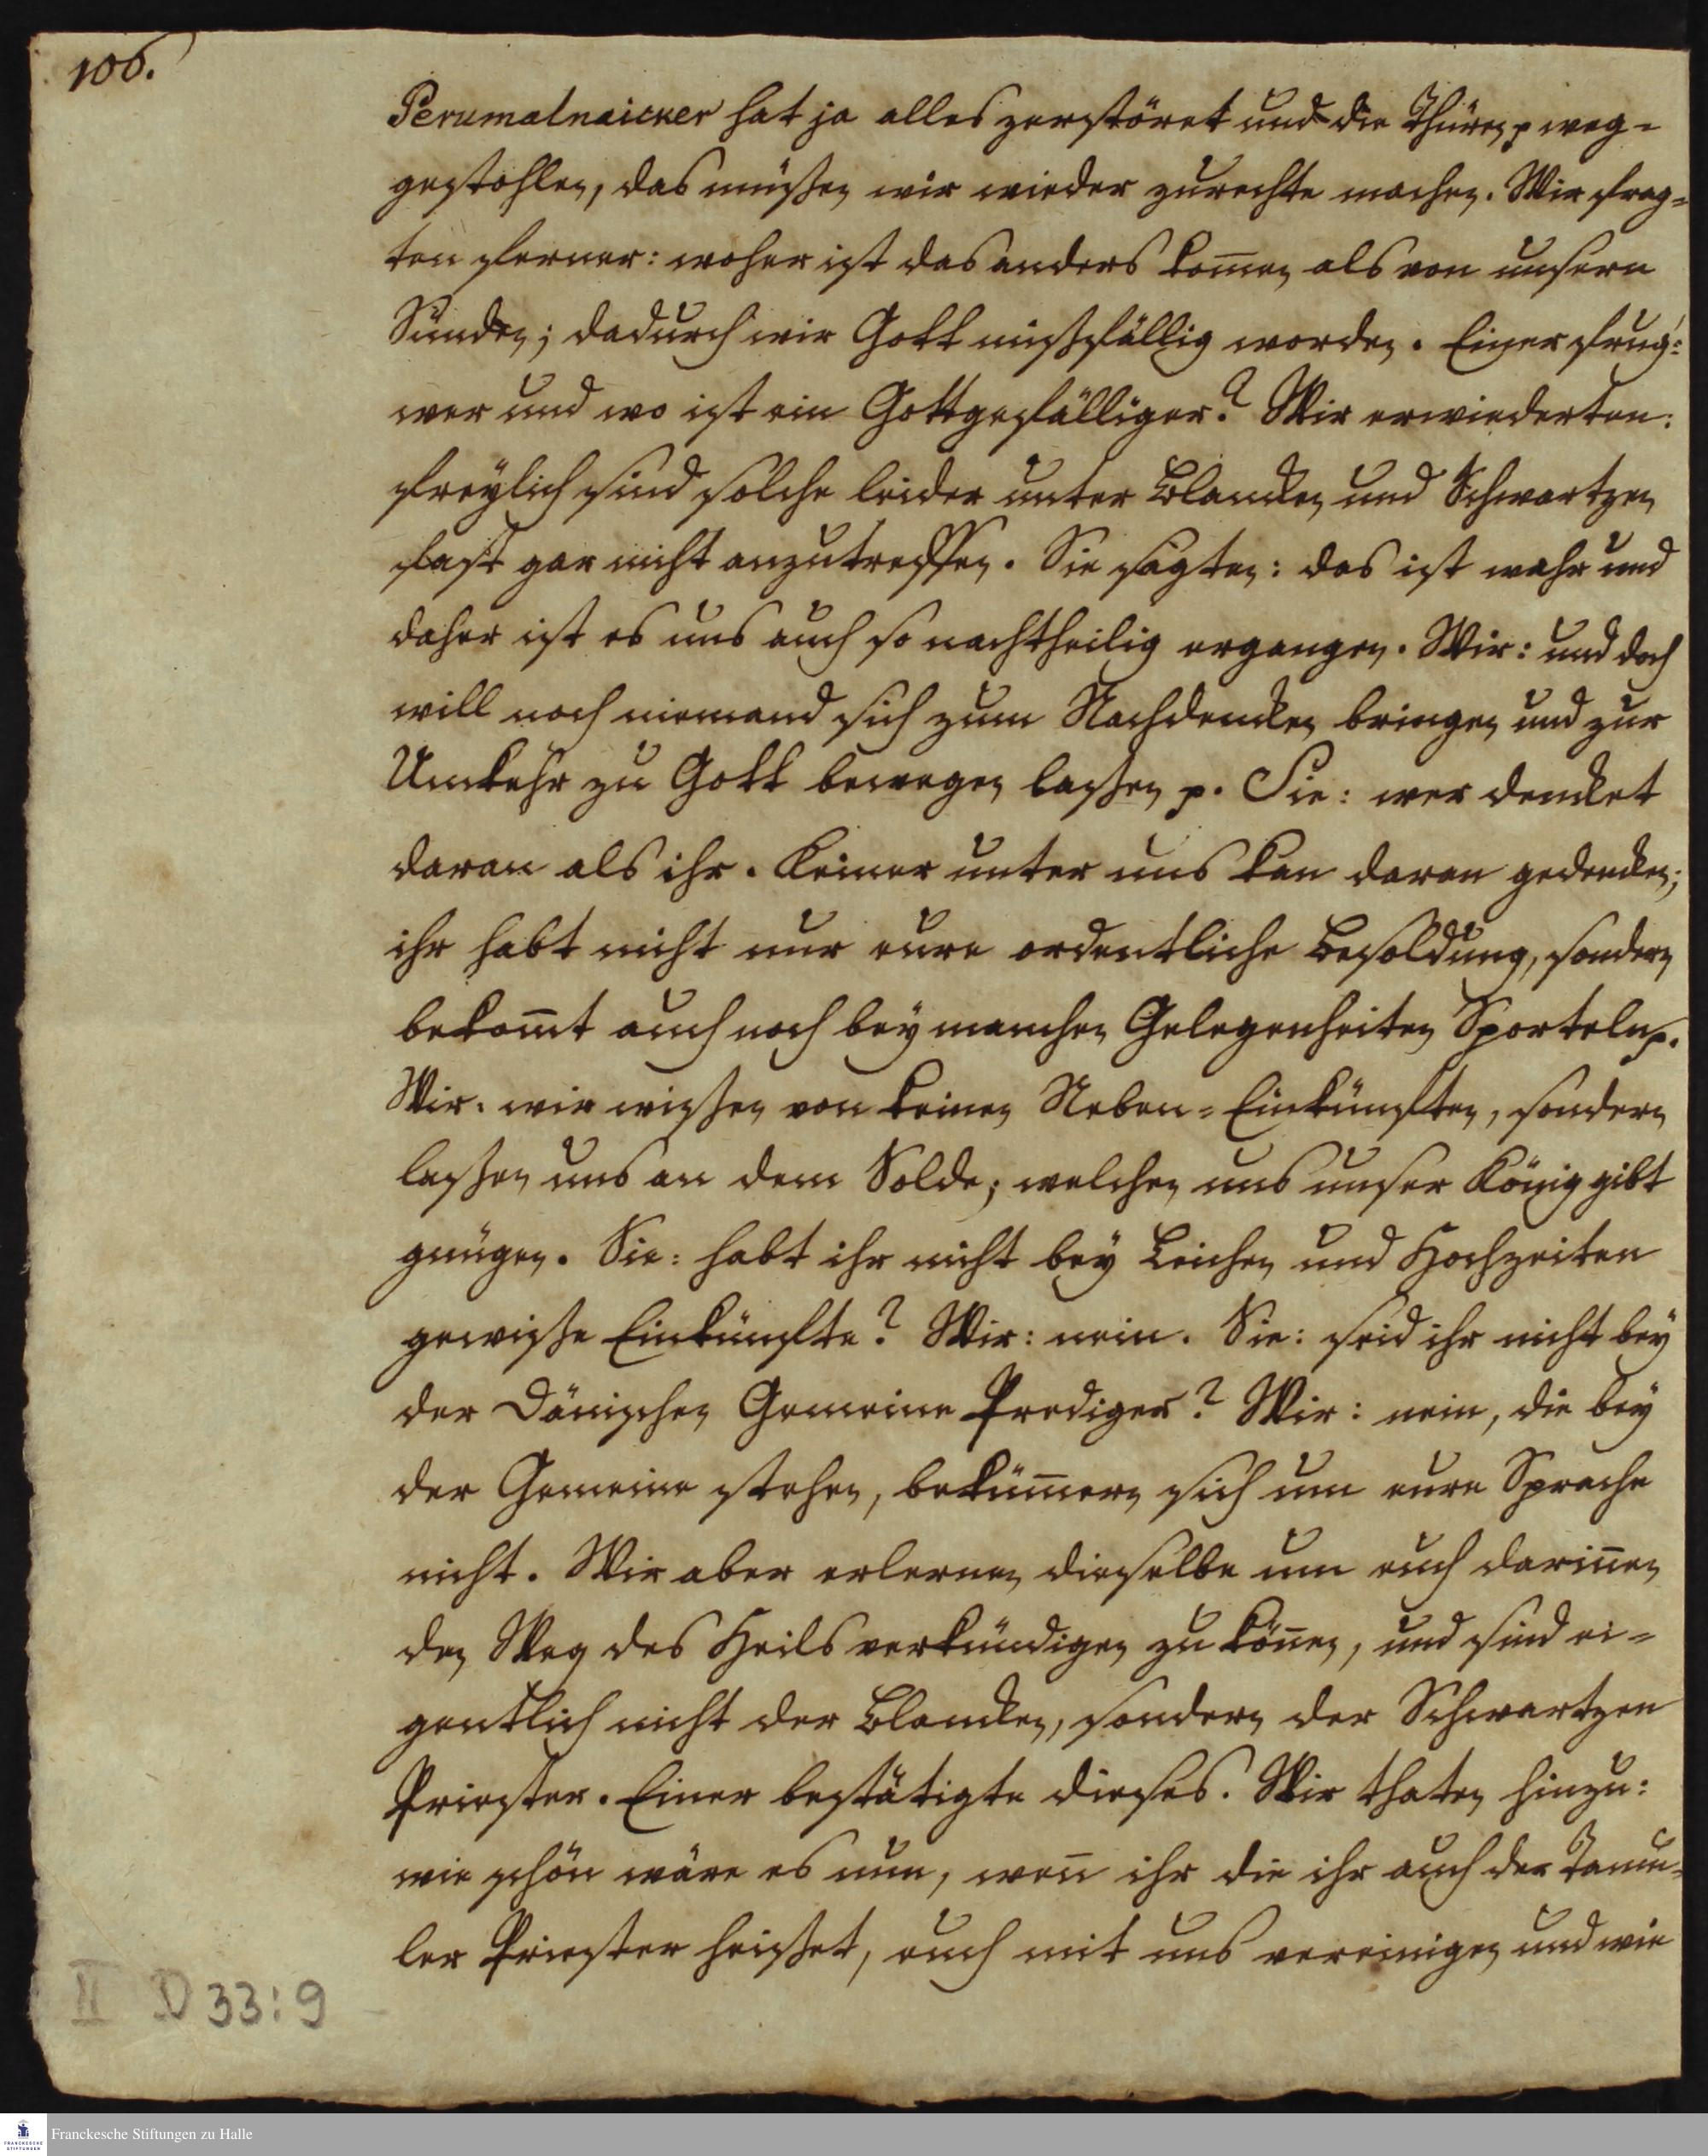 106.
Perumalnaicker hat ja alles zerstöret und die Thüren p weg-
gestohlen, das müßen wir wieder zurechte machen. Wir frag-
ten ferner: woher ist das anders kom̅en als von unsern
Sünden; dadurch wir Gott mißfällig worden. Einer frug:
wer und wo ist ein Gottgefälliger? Wir erwiederten:
freÿlich sind solche leider unter Blancken und Schwartzen
fast gar nicht anzutreffen. Sie sagten: das ist wahr und
daher ist es uns auch so nachtheilig ergangen. Wir: und doch
will noch niemand sich zum Nachdencken bringen und zur
Umkehr zu Gott bewegen laßen p. Sie: wer dencket
daran als ihr. Keiner unter uns kan daran gedencken;
ihr habt nicht nur eure ordentliche Besoldung, sondern
bekom̅t auch noch beÿ manchen Gelegenheiten Sporteln p.
Wir: wir wißen von keinen Neben-Einkünften, sondern
laßen uns an dem Solde, welchen uns unser König gibt
gnügen. Sie: habt ihr nicht beÿ Leichen und Hochzeiten
gewiße Einkünfte? Wir: nein. Sie: seid ihr nicht beÿ
der Dänischen Gemeine Prediger? Wir: nein, die beÿ
der Gemeine stehen, beküm̅ern sich um eure Sprache
nicht. Wir aber erlernen dieselbe um euch darin̅en
den Weg des Heils verkündigen zu kön̅en, und sind ei-
gentlich nicht der Blancken, sondern der Schwartzen
Priester. Einer bestätigte dieses. Wir thaten hinzu:
wie schön wäre es nun, wen̅ ihr die ihr auch der Tamu-
ler Priester heißet, euch mit uns vereinigen und wie
II D 33:9
FRANCKESCHE STIFTUNGEN
Franckesche Stiftungen zu Halle